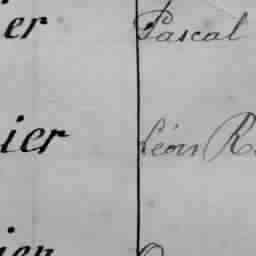 er Pascal
ier Léon R
ier